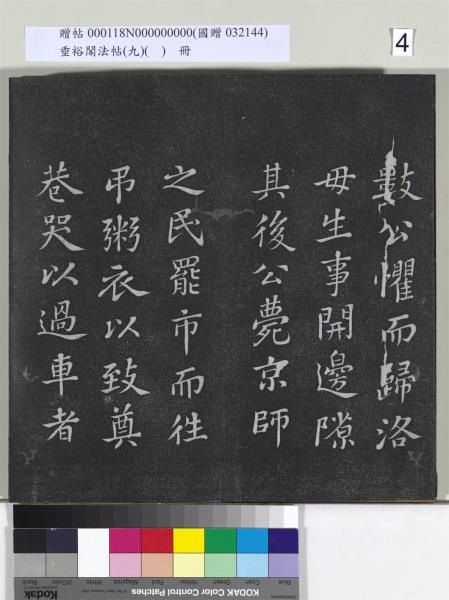 贈帖 000118N000000000(國贈 032144)
垂裕閣法帖(九)( ) 冊
4
數公懼而歸洛
毋生事開邊隙
其後公薨京師
之民罷市而往
弔粥衣以致奠
巷哭以過車者
Blue Cyan Green Yellow Red Magenta White 3/Color Black
Kodak
KODAK Color Control Patches